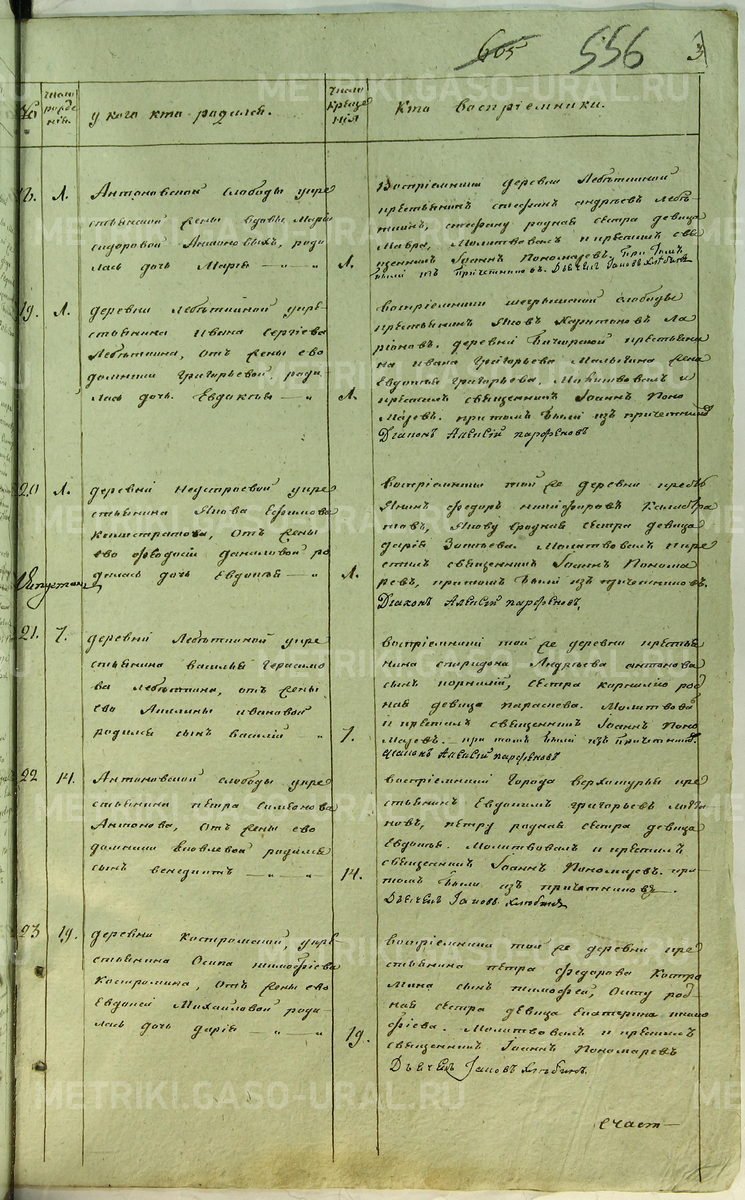 605 556 3
№ число рожденія. у кого кто родился. число крещенія кто воспріемники.
18. Л. Антоновской слободы у кре
стьянской жены вдовы Марьи
сидоровой Антоновыхъ, роди
лась дочь Марія Л.
Воспріемники деревни Лебѣткиной
крестьянинъ стефанъ андреевъ Лебѣ
ткинъ, стефану родная сестра девица
Мавра, Молитвовалъ и крестилъ свя
щенникъ Іоаннъ Пономаревъ. при томъ
были изъ причетниковъ. Дьячекъ Іаковъ Хлѣбинъ
19. Л. деревни Лебѣткиной у кре
стьянина Ивана Сергіева
Лебѣткина, отъ жены ево
домники Григорьевой роди
лась дочь Евдокія Л.
Воспріемники слободы
крестьянинъ Яковъ Харитоновъ Ла
ріоновъ. деревни крестьяни
на ивана Григорьева Малыгина жена
Евдокья Григорьева. Молитвовалъ и
крестилъ священникъ Іоаннъ Поно
маревъ. при томъ были изъ причетниковъ
Діаконъ Алексій парфеновъ
20 Л. деревни Недстроевой у кре
стьянина Якова Ефимова
Калистратова, отъ жены
ево Феодосіи даниловой ро
дилась дочь Евдокья Л.
Воспріемники той же деревни кресть
янинъ федоръ никифоровъ Калистра
товъ, Якову сродная сестра девица
дарія Зотьева. Молитвовалъ и кре
стилъ священникъ Іоаннъ Понома
ревъ, притомъ были изъ причетниковъ.
Діаконъ Алексій парфеновъ,
21. 7. деревни Лебѣткиной у кре
стьянина василья Герасимо
ва Лебѣткина, отъ жены
ево Акилины ивановой
родился сынъ василій 7.
воспріемники той же деревни крестья
нина спиридона Андреева антонова
сынъ корнилій, сестра корнилію род
ная девица параскева. Молитвовалъ
и крестилъ священникъ Іоаннъ Поно
маревъ. при томъ были изъ причетник.
діаконъ Алексій парфеновъ
22 14. Антоновской слободы у кре
стьянина петра симеонова
Антонова, отъ жены ево
домники Яковлевой родился
сынъ венедиктъ 14.
воспріемники города верхотурья кре
стьянинъ Евдокимъ григорьевъ
новъ, петру родная сестра девица
Евдокья. Молитвовалъ и крестилъ
священникъ Іоаннъ Пономаревъ. при
томъ были изъ причетниковъ.
Дьячекъ Іаковъ Хлебинъ
23 19. деревни костроминой, у кре
стьянина Осипа тимофіева
Костромина, отъ жены ево
Евдокіи Михайловой роди
лась дочь дарія 19.
воспріемники той же деревни кре
стьянина петра федорова Костро
мина сынъ тимофей, осипу род
ная сестра девица Екатерина тимо
фіева. Молитвовалъ и крестилъ
священникъ Іоаннъ Пономаревъ
Дьячекъ Іаковъ Хлебинъ.
счаст
METRIKI.GASO-URAL.RU